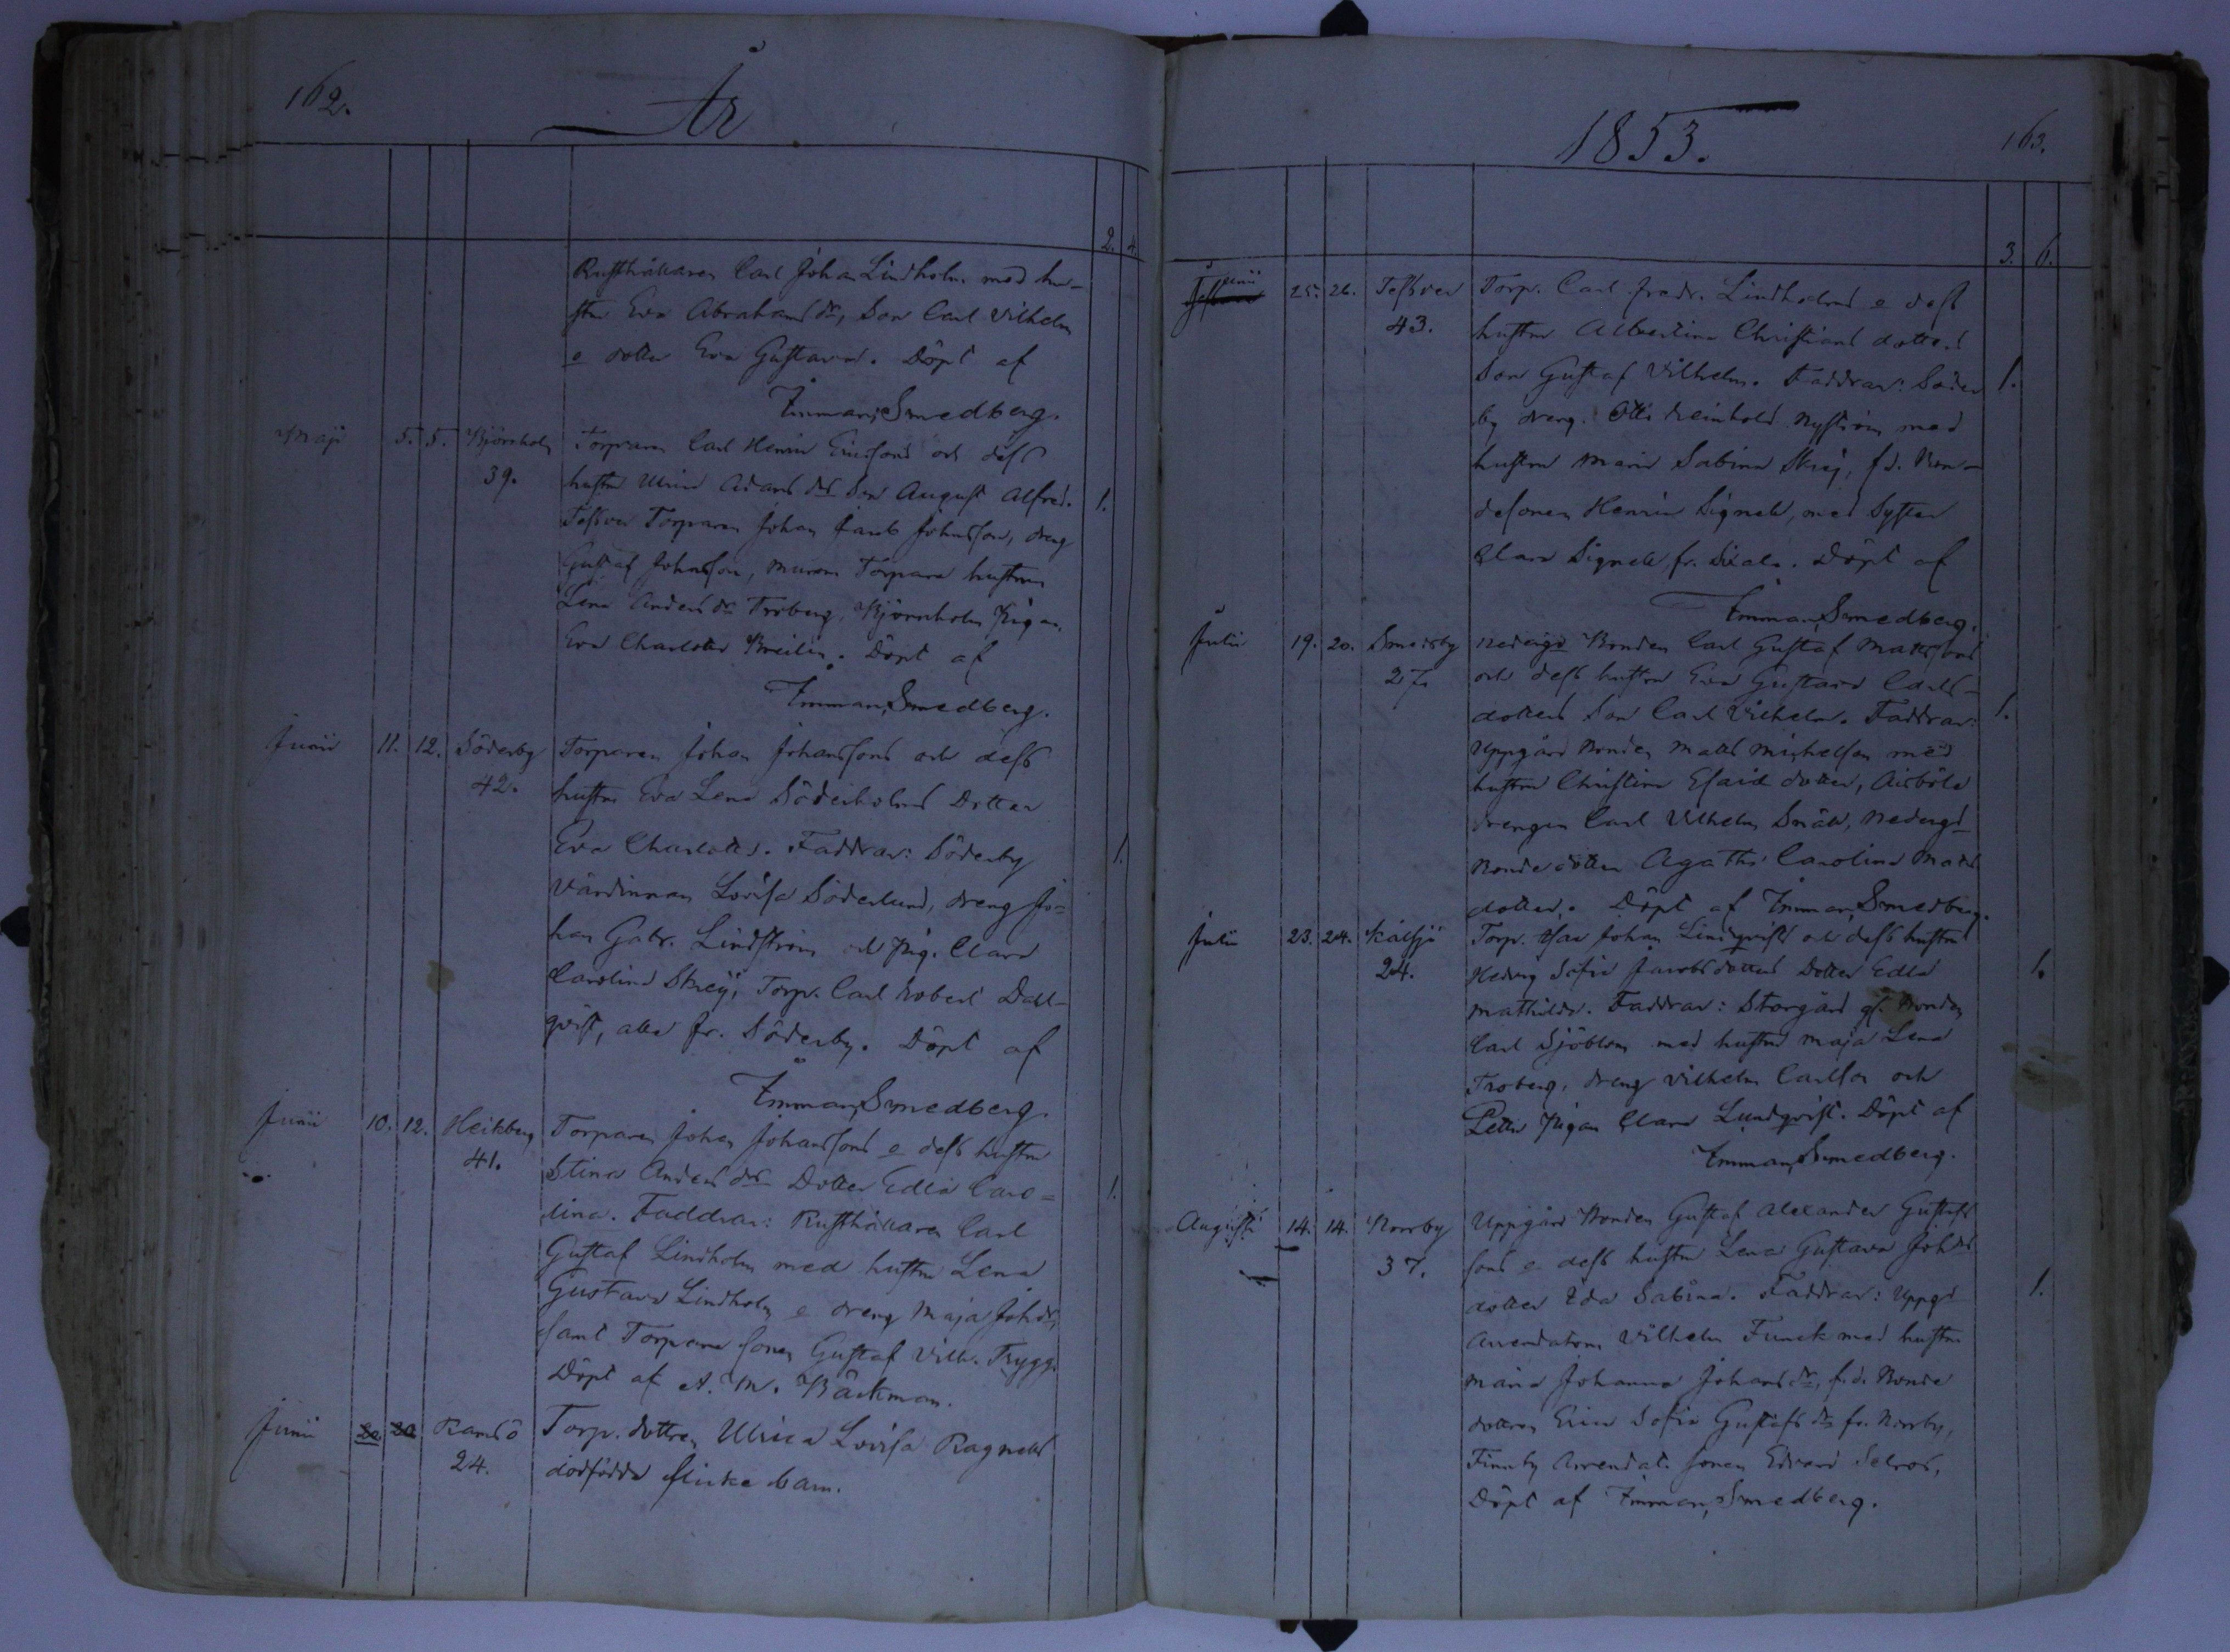 162.
År
2. 4
Rusthållaren Carl Johan Lindholm med hu-
stru Eva Abrahams dr, Son Carl Vilhelm
o dotter Eva Gustava. Döpt af
Imman. Smedberg.
Maji 5. 5. Björnholm Torparen Carl Henric Ericssons och dess
39. hustru Ulrica Adams drs Son August Alfred. 1.
Torparen Johan Jacob Johansson, dreng
Gustaf Johansson, Torpare hustrun
Lena Anders dr Troberg, Björnholm Pigan
Eva Charlotta. Döpt af
Imman. Smedberg.
Junii 11. 12. Söderby Torparen Johan Johanssons och dess
42. hustru Eva Lena Söderholms Dotter
Eva Charlotta. Faddrar: Söderby 1.
Värdinnan Lovisa Söderlund, dreng Jo=
han Gabr. Lindström och Pig. Clara
Carolina Skreij, Torp. Carl Robert Dahl-
qvist, alla fr. Söderby. Döpt af
Imman. Smedberg.
Junii 10. 12. Heikberg Torparen Johan Johanssons o dess hustru
41. Stina Anders drs Dotter Edla Caro= 1.
lina. Faddrar: Rusthållaren Carl
Gustaf Lindholm med hustru Lena
Gustava Lindholm o dreng Maja Johs dr
samt Torpare sonen Gustaf Vilh. Trygg.
Döpt af A. M. Bäckman.
Junii 20 20 Ramsö Torp. dottren Ulrica Lovisa Ragnells
24. dödfödda flicke barn.
1853. 163.
3. 6.
Junii 25. 26. Tessvar Torp. Carl Fredr. Lindholms o dess
43. hustru Albertina Christians dotters
Son Gustaf Vilhelm. Faddrar: Söder 1.
by dreng. Otto Reinhold Nyström med
hustru Maria Sabina Skreij, f.d. Bon-
desonen Henric Signell, med Syster
Clara Signell, fr. Döpt af
Imman. Smedberg.
Julii 19. 20. Smedsby Nedergd Bonden Carl Gustaf Mattssons
27. och dess hustru Eva Gustava Carls-
dotters Son Carl Vilhelm. Faddrar: 1.
Uppgård Bonden Matts Michelsson med
hustru Christina Esaie dotter,
drengen Carl Vilhelm Snäll, Nedergd
Bonde dotter Agatha Carolina Matts
dotter. Döpt af Imman. Smedberg.
Julii 23. 24. Kalsjö Torp. Isac Johan Lindqvists och dess hustru
24. Hedvig Sofia Jacobs dotters Dotter Edla 1.
Mathilda. Faddrar: Storgård gl. Bonden
Carl Sjöblom med hustru Maja Lena
Troberg, dreng Vilhelm Carlsson och
Pigan Clara Lundqvist. Döpt af
Imman. Smedberg.
Augusti 14. 14. Norrby Uppgård Bonden Gustaf Alexander Gustafs
37. sons o dess hustru Lena Gustava Johds
dotter Ida Sabina. Faddrar: Uppgd 1.
Arrendatorn Vilhelm Funck med hustru
Maria Johanna Johans dr, f.d. Bonde
dottren Erica Sofia Gustafs dr fr. Norrby,
Finnby Arrendat. sonen Edvard Selroos,
Döpt af Imman. Smedberg.